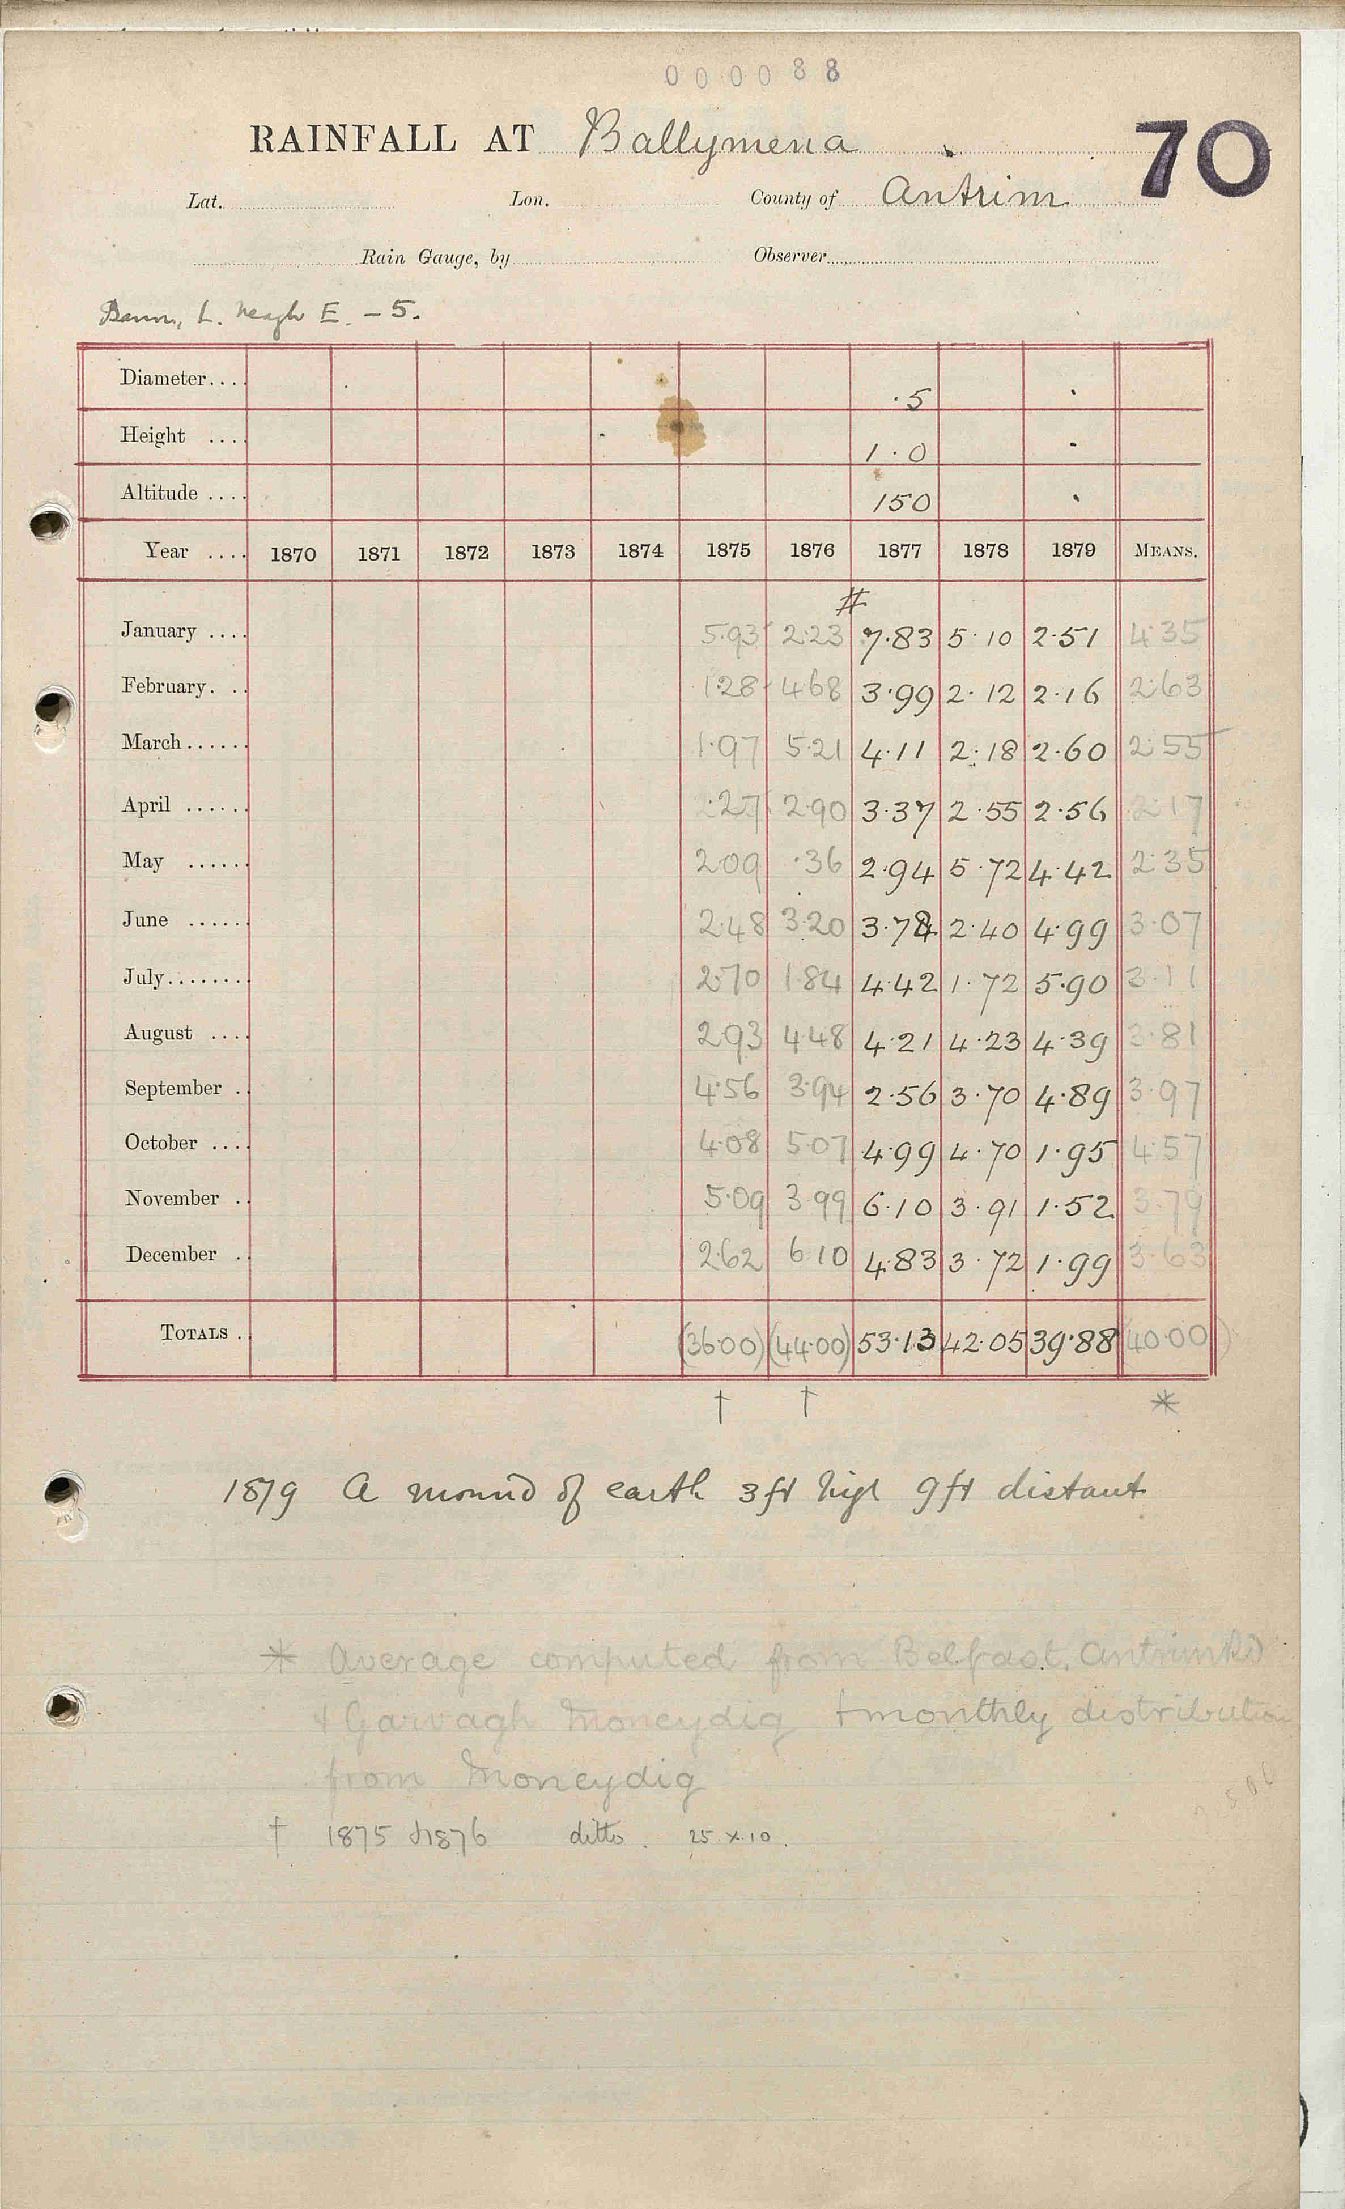 000088
RAINFALL AT Ballymena
70
Lat. Lon. County of Antrim
Rain Gauge, by Observer
Bann, L. Neagh E. - 5.
Diameter.... ·5
Height .... 1·0
Altitude .... 150
Year .... 1870 1871 1872 1873 1874 1875 1876 1877 1878 1879 MEANS.
#
January .... 5·93 2·23 7·83 5·10 2·51 4·35
February. .. 1·28 4·68 3·99 2·12 2·16 2·63
March...... 1·97 5·21 4·11 2·18 2·60 2·55
April ...... ·27 2·90 3·37 2·55 2·56 2·17
May ...... 2·09 ·36 2·94 5·72 4·42 2·35
June ...... 2·48 3·20 3·78 2·40 4·99 3·07
July........ 2·70 1·84 4·42 1·72 5·90 3·11
August .... 2·93 4·48 4·21 4·23 4·39 3·81
September .. 4·56 3·94 2·56 3·70 4·89 3·97
October .... 4·08 5·07 4·99 4·70 1·95 4·57
November .. 5·09 3·99 6·10 3·91 1·52 3·79
December .. 2·62 6·10 4·83 3·72 1·99 3·63
TOTALS .. (36·00) (44·00) 53·13 42·05 39·88 (40·00)
† † *
1879 A mound of earth 3ft high 9ft distant
* Average computed from Belfast, Antrim Rd
& Garvagh Moneydig † monthly distribution
from Moneydig
† 1875 & 1876 ditto. 25.x.10.